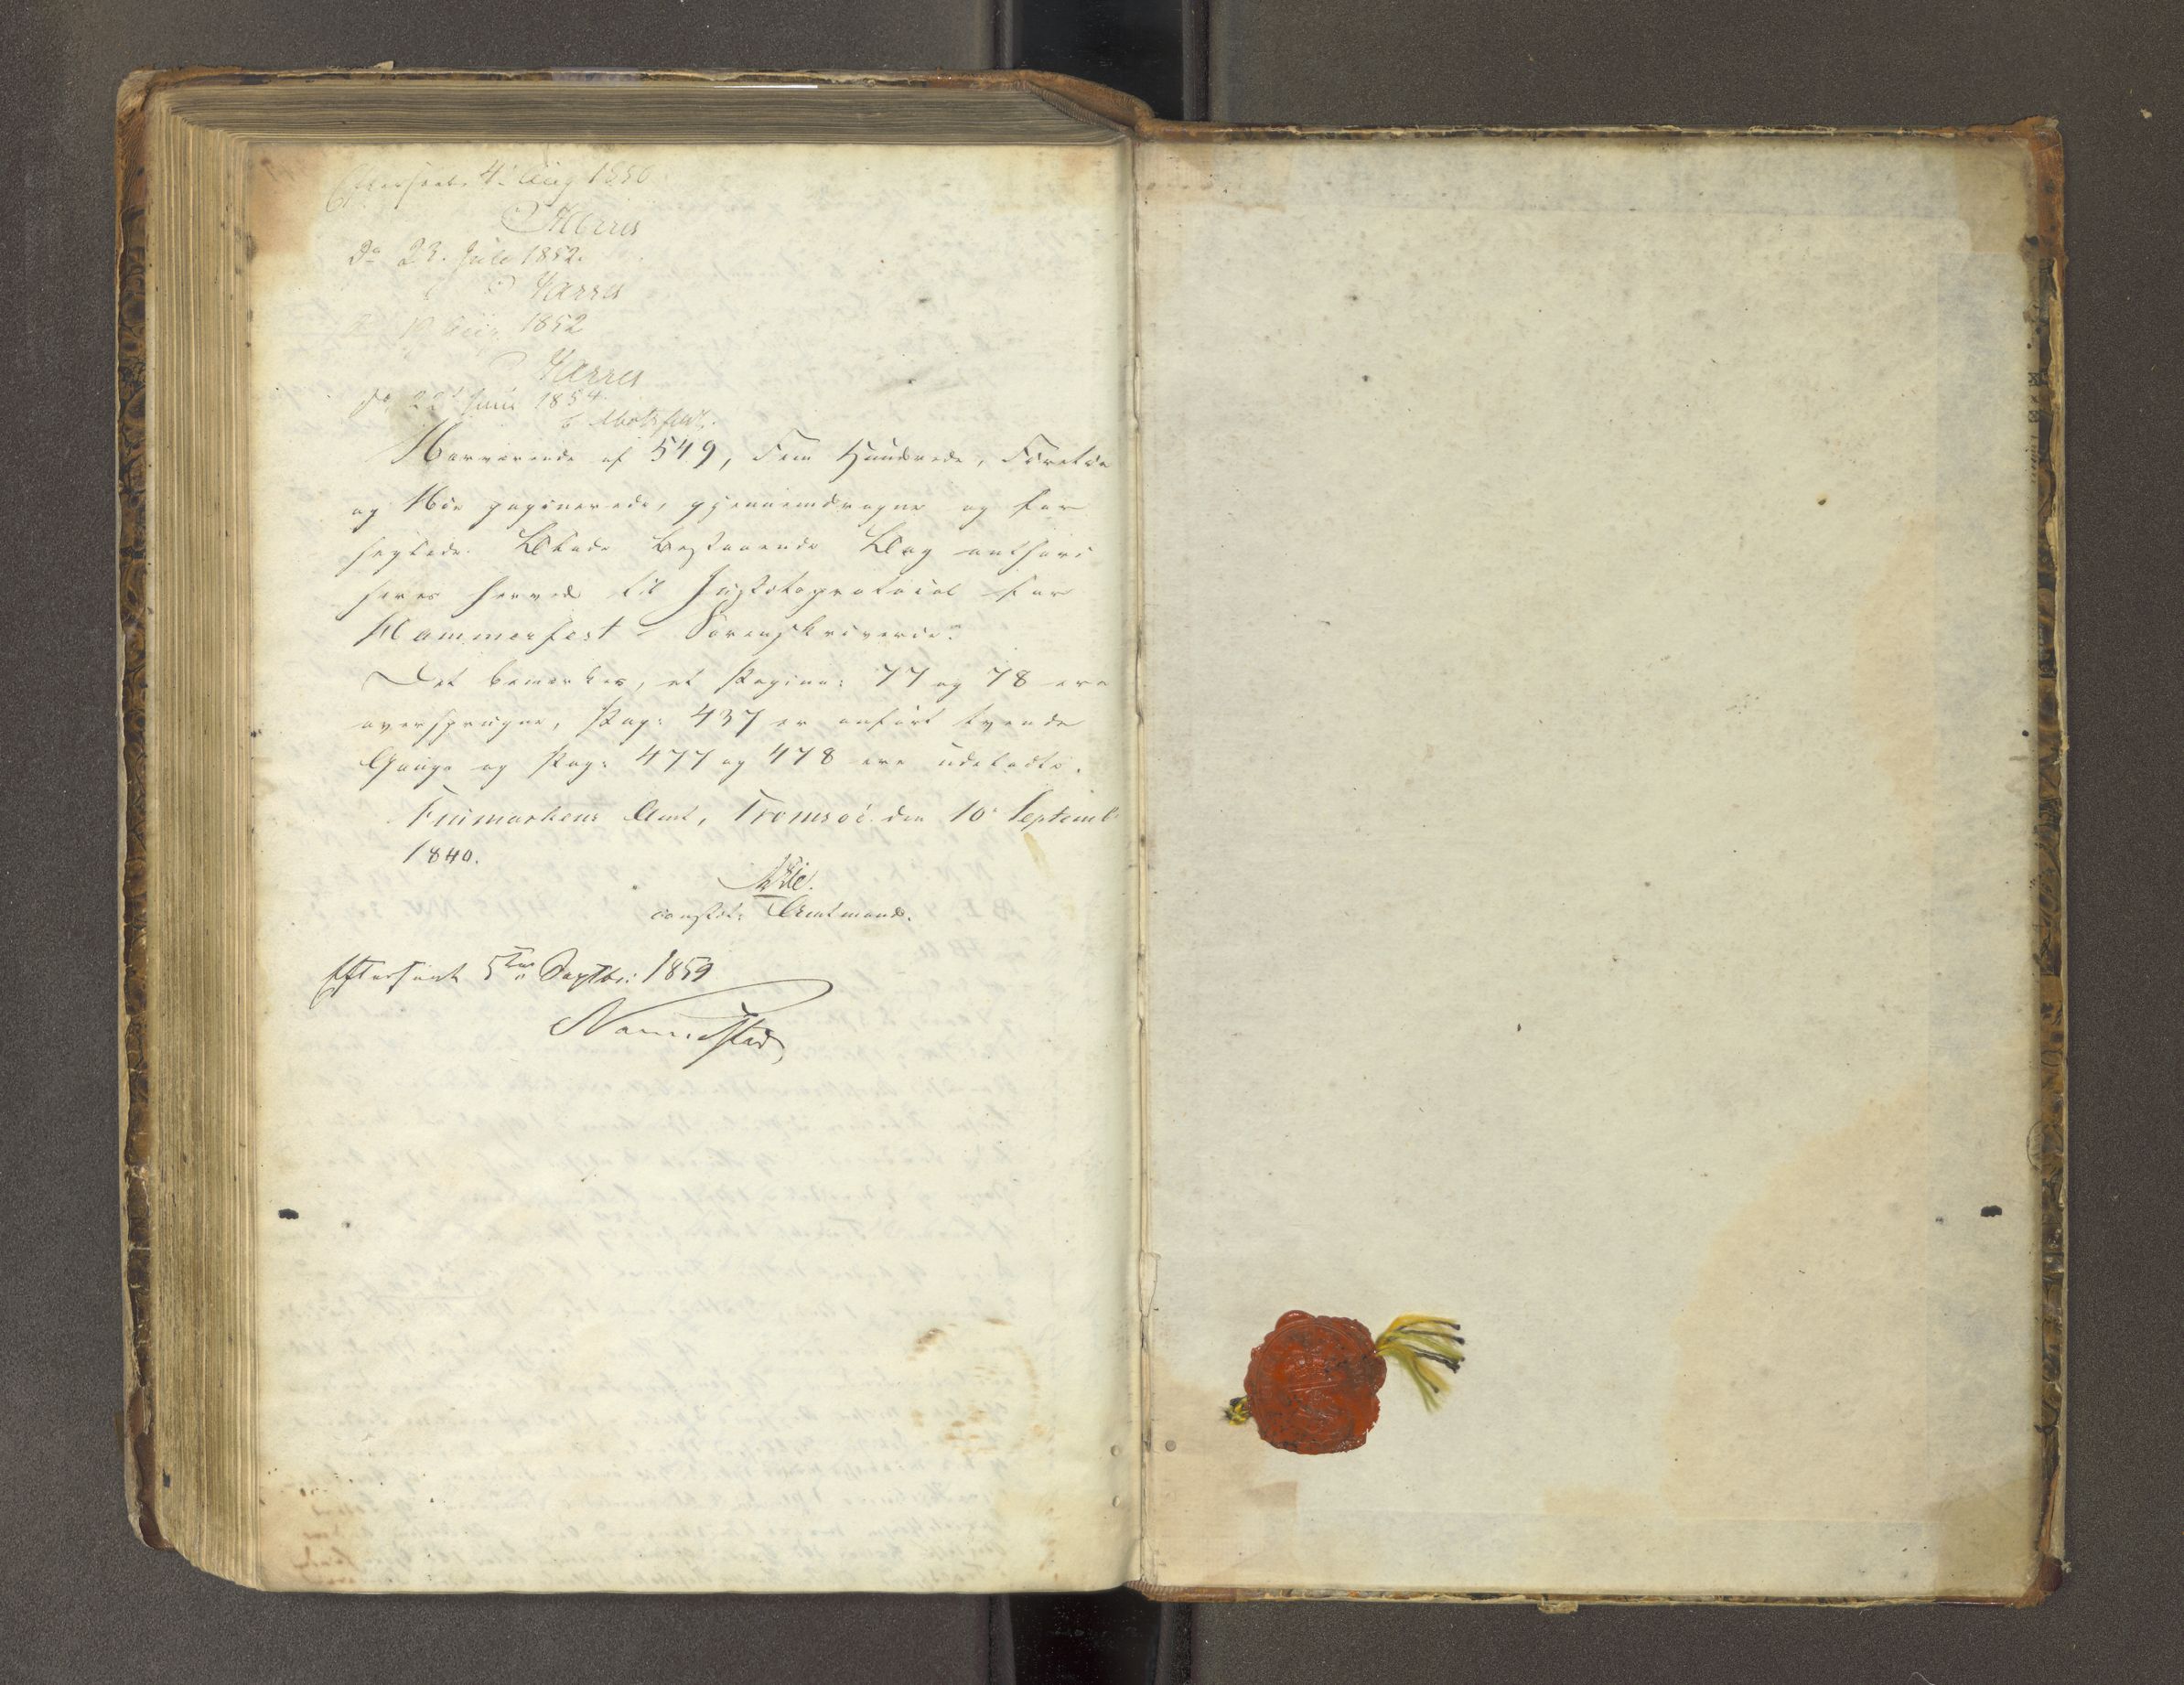 Efterseet 4. Aug 1850
Harris
Do 23. Juli 1852.
Harris
Do Aug 1852
Harris
Do Juni 1854
Nærværende af 549, Fem Hundrede, Føretie
og Nie paginerede, gjennemdragne og for
seglede Blade bestaaende Bog authori
seres herved til Justitsprotocol for
Hammerfest Sorenskriverie.
Det bemærkes, at Pagina: 77 og 78 ere
oversprugne, Pag: 437 er anført tvende
Gange og Pag: 477 og 478 ere udeladte.
Finmarkens Amt, Tromsøe den 10 Septemb
1840.
constit: Amtmand.
Efterseet 5te Septbr: 1859